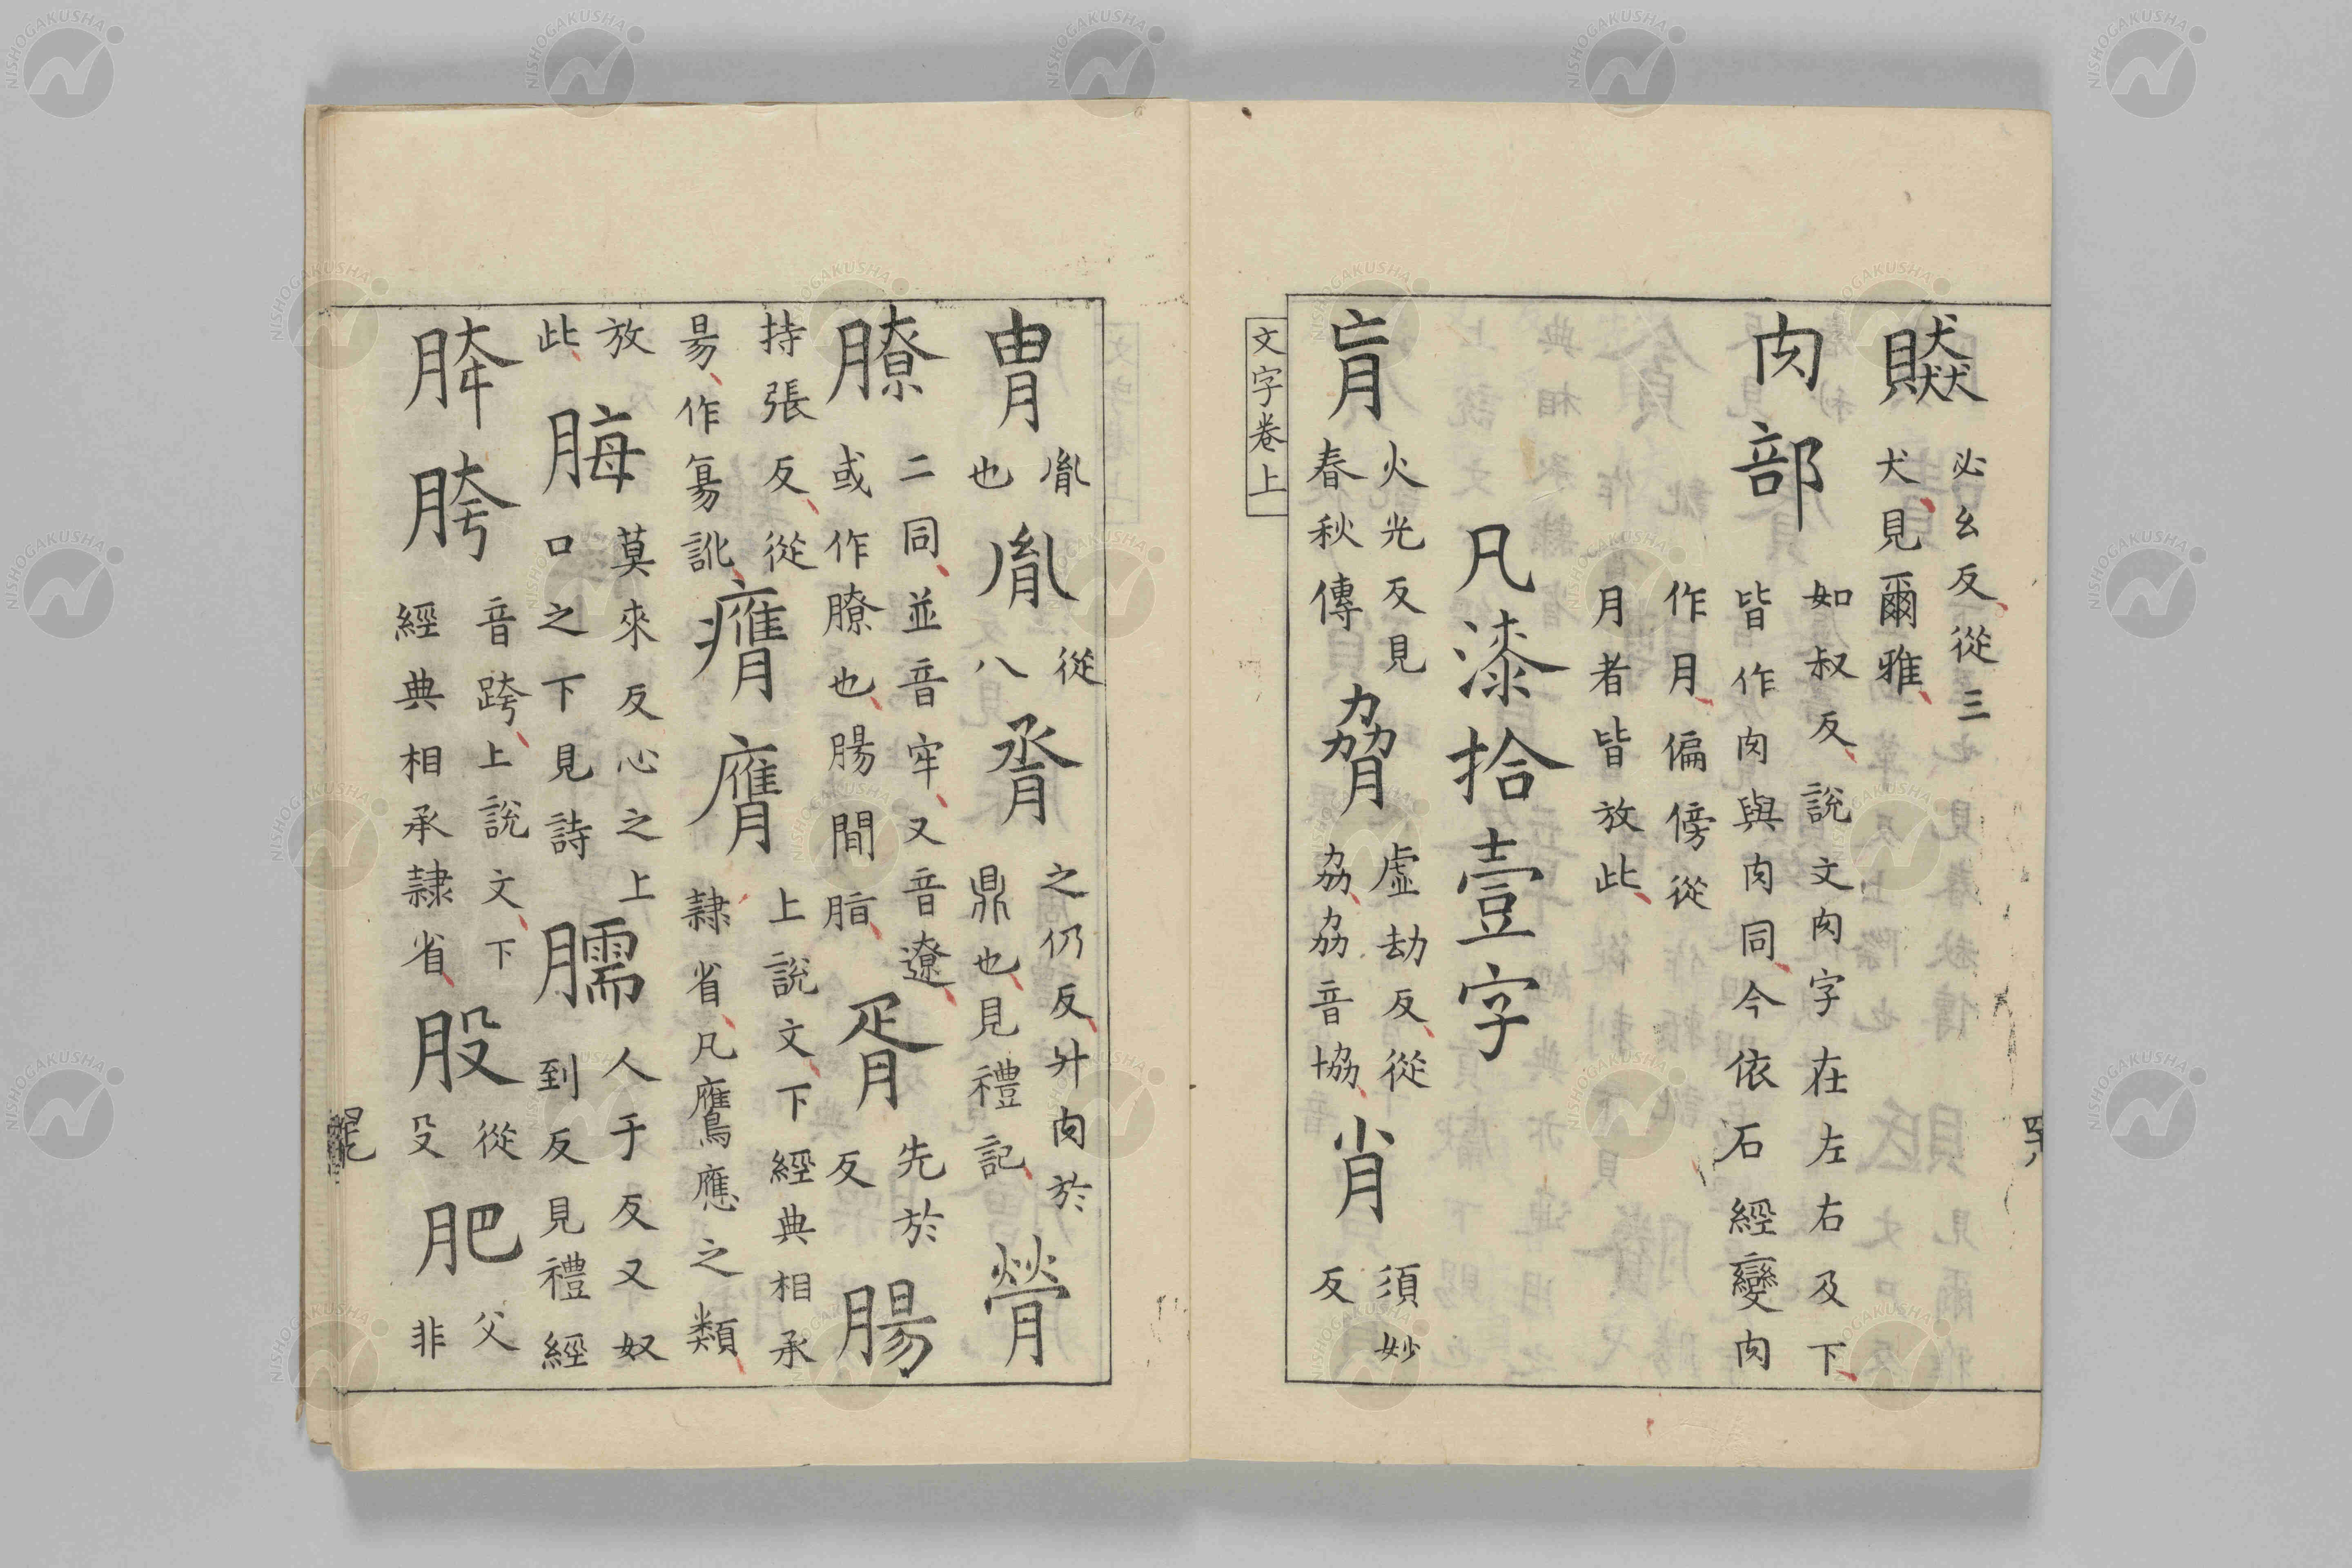 贆必幺反從三犬見爾雅
肉部如叔反說文肉字在左右及下
皆作肉與肉同今依石經變肉
作月偏傍從
月者皆放此
凡漆拾壹字
肓火光反見春秋傳脅虛劫反從劦劦音協肖須妙反
文字卷上
冑胤也胤從八脀之仍反升肉於鼎也見禮記膋
膫二同並音牢又音遼或作膫也腸間脂胥先於反腸
持張反從昜作訛膺上說文下經典相承隸省凡鷹應之類
放此脢莫來反心之上口之下見詩臑人于反又奴到反見禮經
胯音跨上說文下經典相承隸省股從殳肥父非